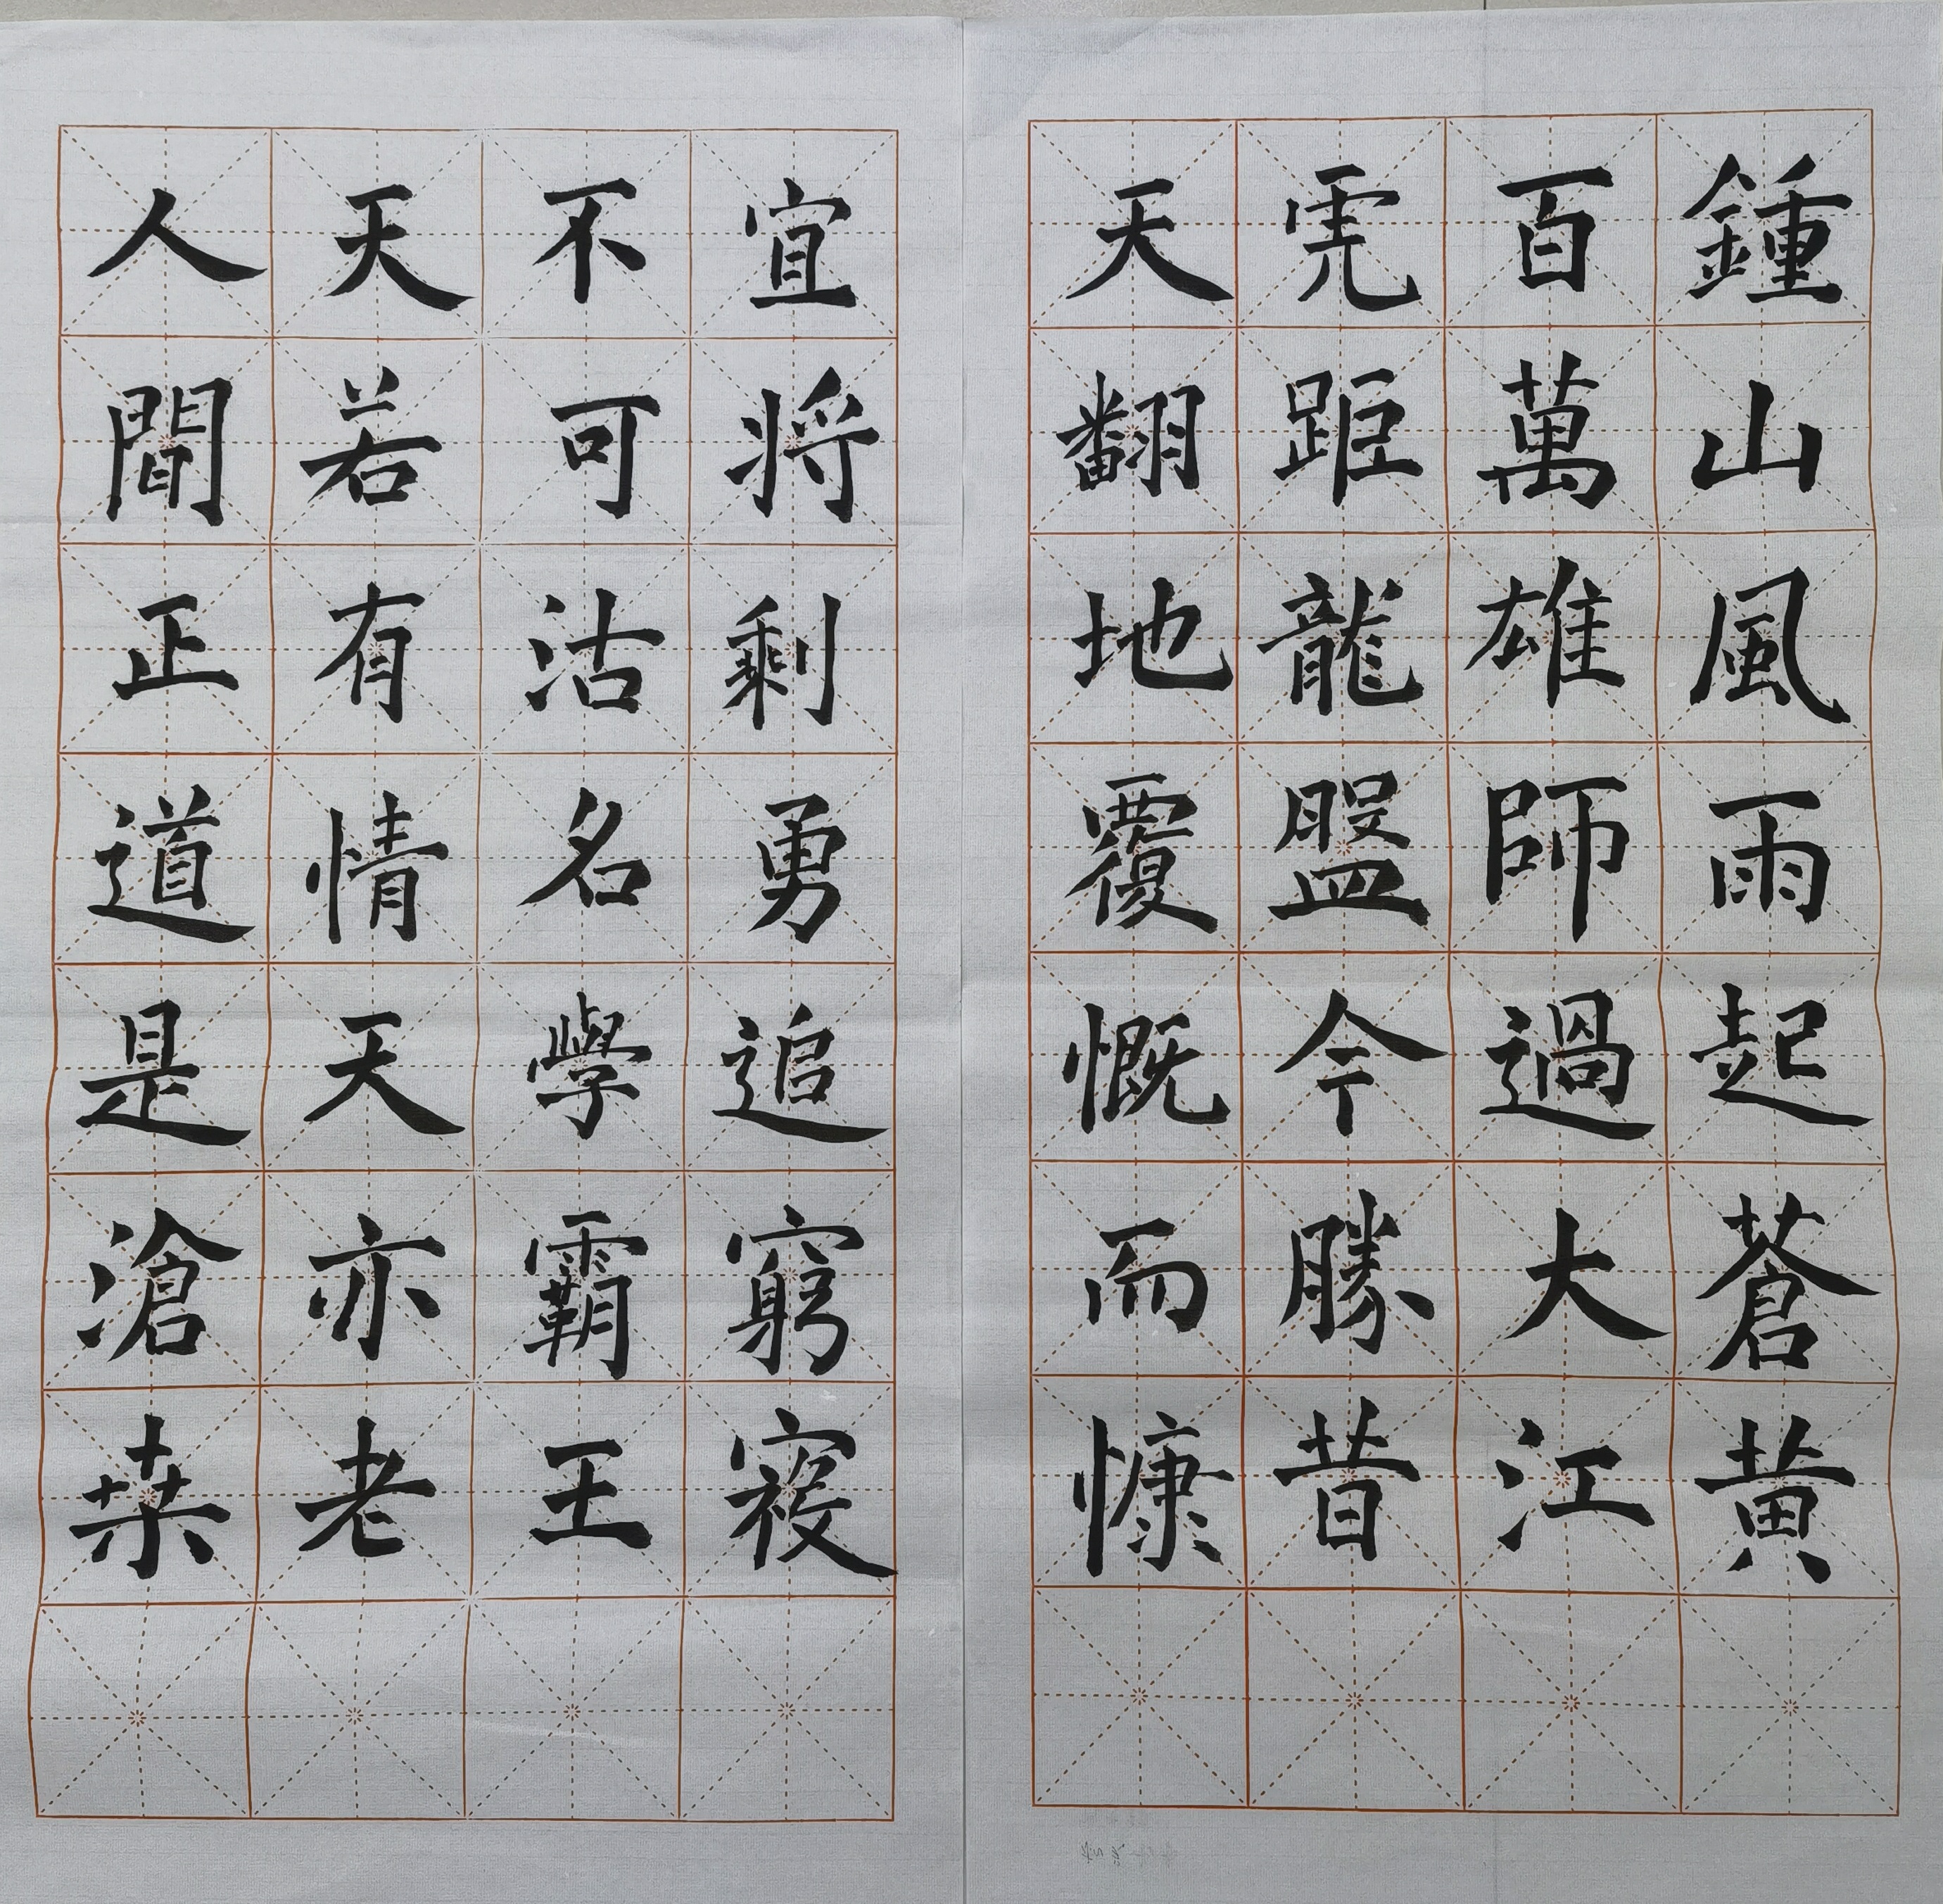 鍾山風雨起蒼黃
百萬雄師過大江
虎距龍盤今勝昔
天翻地覆慨而慷
宜将剩勇追窮寇
不可沽名學霸王
天若有情天亦老
人間正道是滄桒